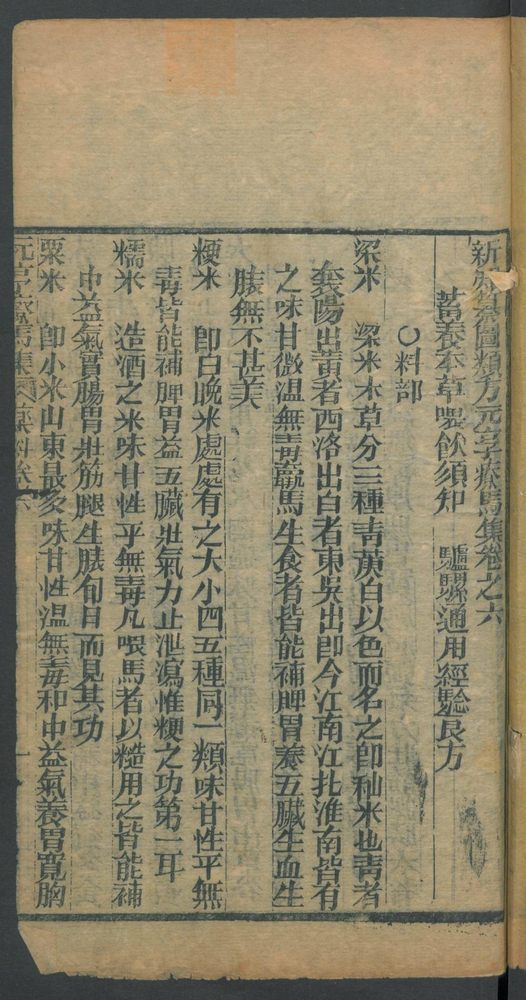 新刻□圖類方元亨療馬集卷之六
蓄養本草喂飲須知　驢騾通用經驗良方
○料部
梁米　梁米本草分三種青黄白以色而名之卽秈米也靑者
襄陽出黃者西洛出白者東吳出卽今江南江北淮南皆有
之味甘微温無毒羸馬生食者皆能補脾胃養五臟生血生
膘無不甚美
粳米　卽白晚米處處有之大小四五種同一類味甘性平無
毒皆能補脾胃益五臟壯氣力止泄瀉惟粳之功第一耳
糯米　造酒之米味甘性平無毒凡喂馬者以糙用之皆能補
中益氣實腸胃壯筋腿生膘旬日而見其功
粟米　卽小米山東最多味甘性温無毒和中益氣養胃寬胸
元亨療馬集　料六